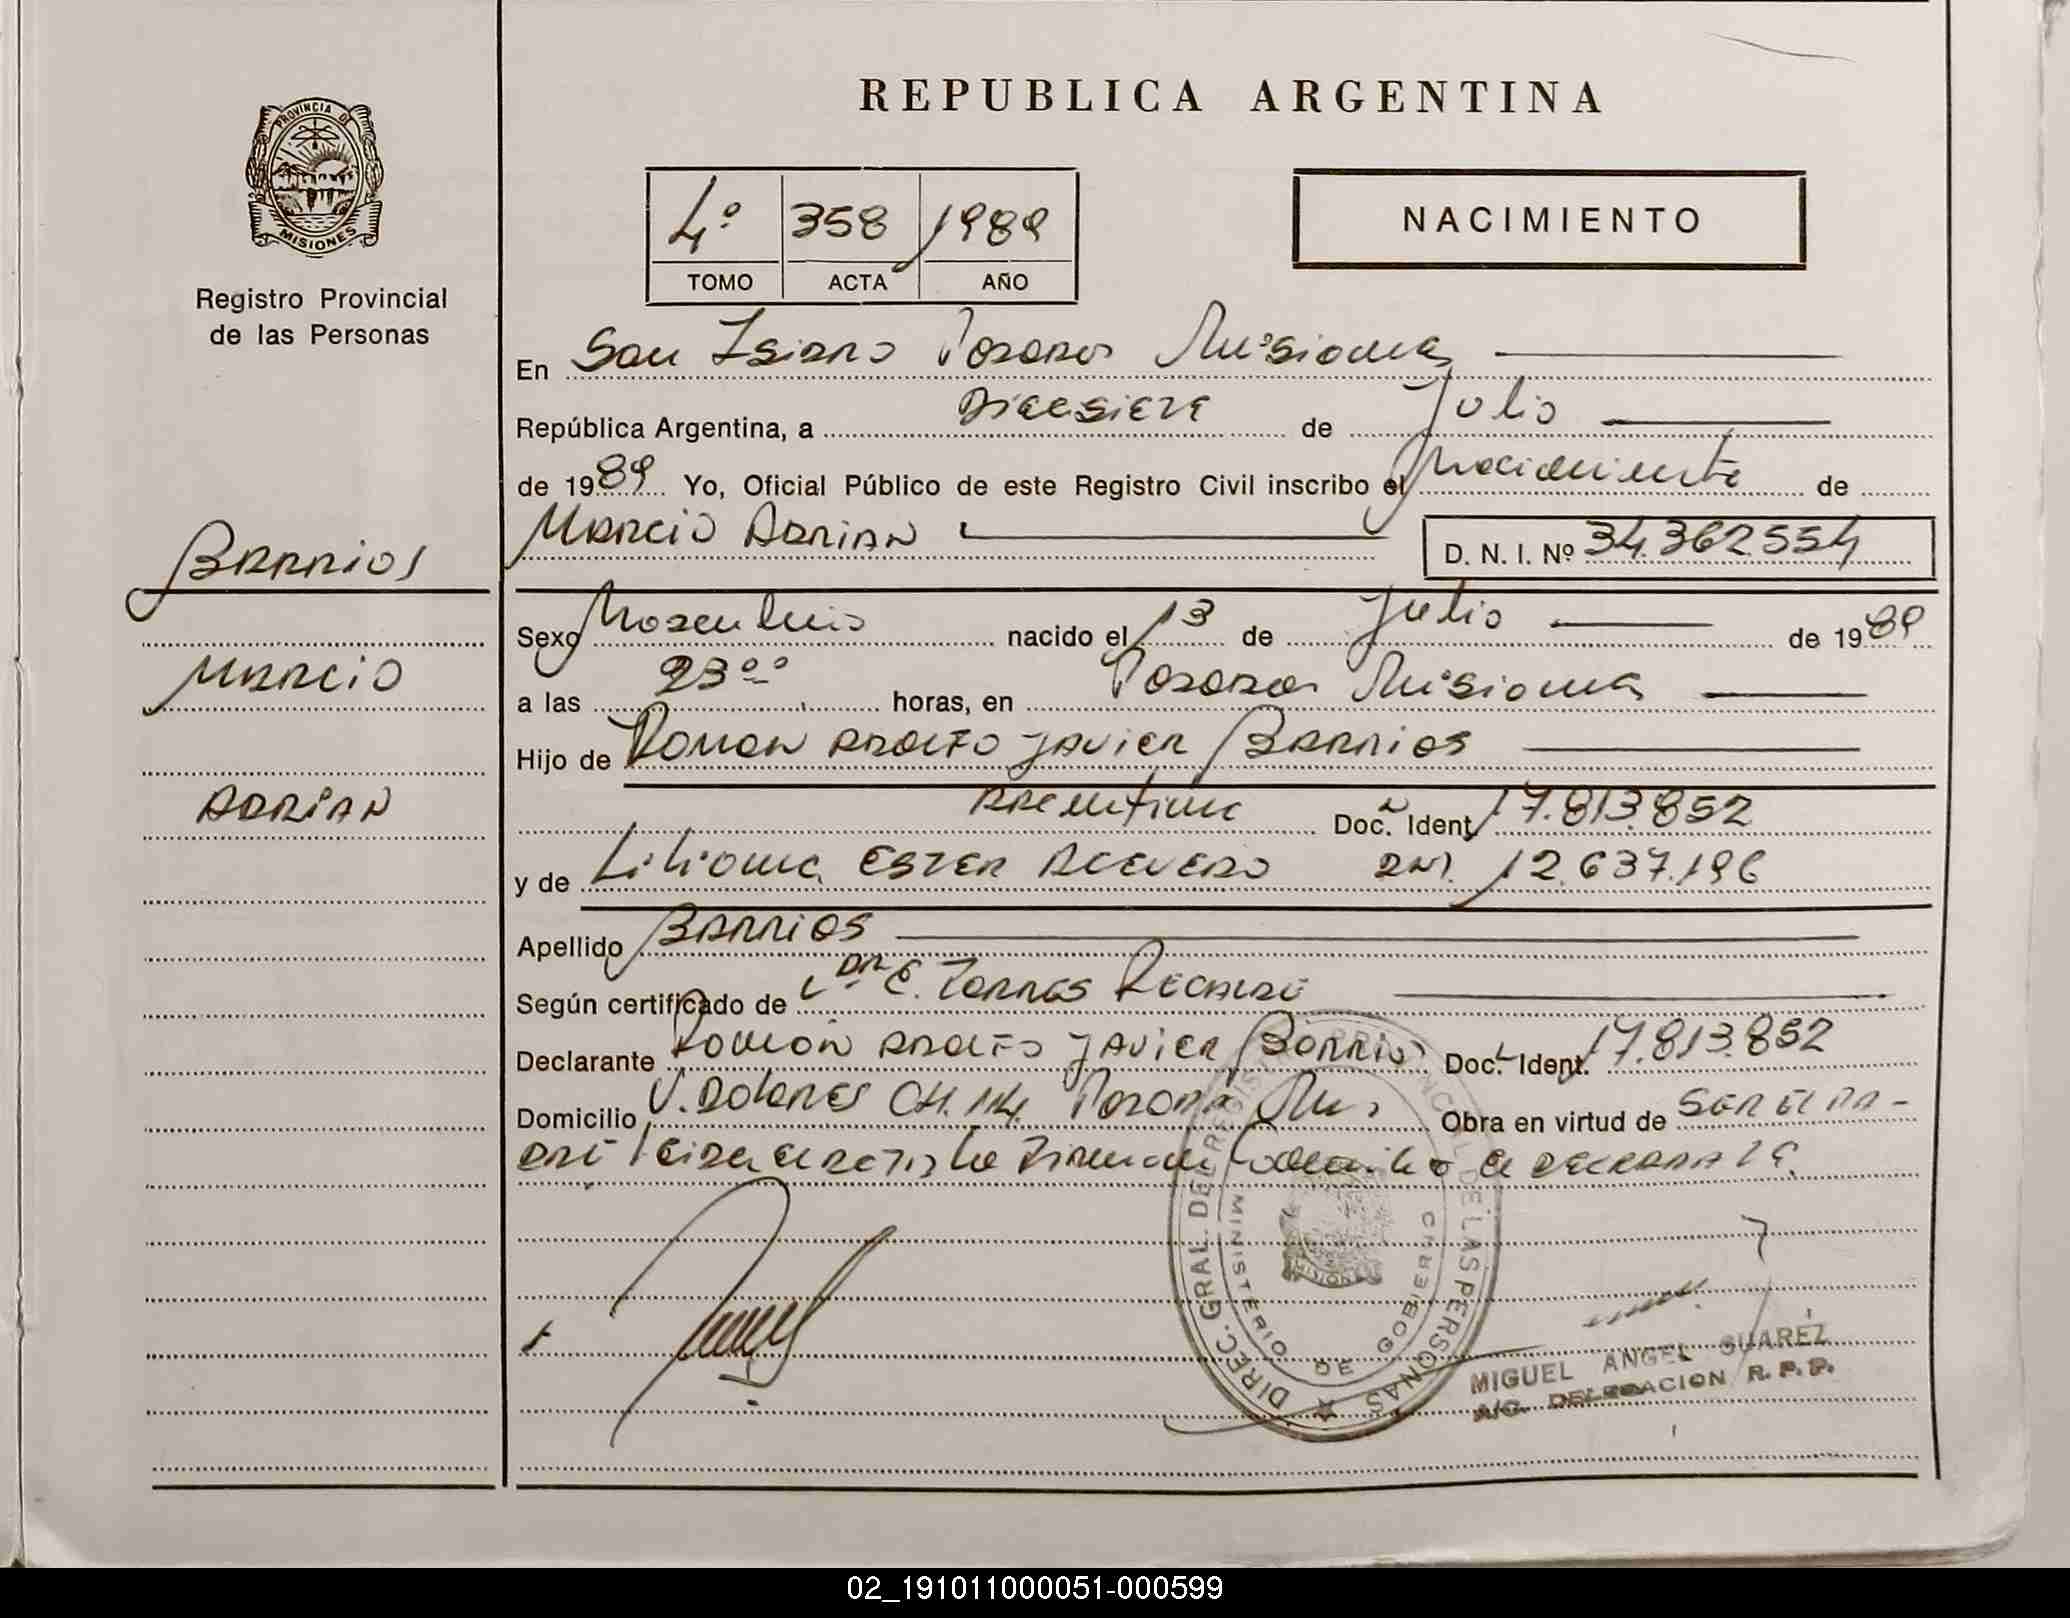 REPUBLICA ARGENTINA
PROVINCIA DE
MISIONES
Registro Provincial
de las Personas
4º 358 1989
TOMO ACTA AÑO
NACIMIENTO
En San Isidro Posadas Misiones
República Argentina, a Diecisiete de Julio
de 1989 Yo, Oficial Público de este Registro Civil inscribo el Nacimiento de
Marcio Adrian D. N. I. Nº 34.362554
BARRIOS
MARCIO
ADRIAN
Sexo Masculino nacido el 13 de Julio de 1989
a las 23ºº horas, en Posadas Misiones
Hijo de Roman Adolfo Javier Barrios
Argentino Doc. Ident. 17.813.852
y de Liliana Ester Acevedo DNI. 12.637.196
Apellido Barrios
Según certificado de Dr. E. Torres Recalde
Declarante Román Adolfo Javier Barrios Doc. Ident. 17.813.852
Domicilio V. Dolores CH. 114 Posadas Mis Obra en virtud de ser el pa-
dre la firman el declarante.
DIREC. GRAL. DEL REGISTRO PROVINCIAL DE LAS PERSONAS
MINISTERIO DE GOBIERNO
MIGUEL ANGEL SUAREZ
A/C. DELEGACION R. P. P.
02_191011000051-000599